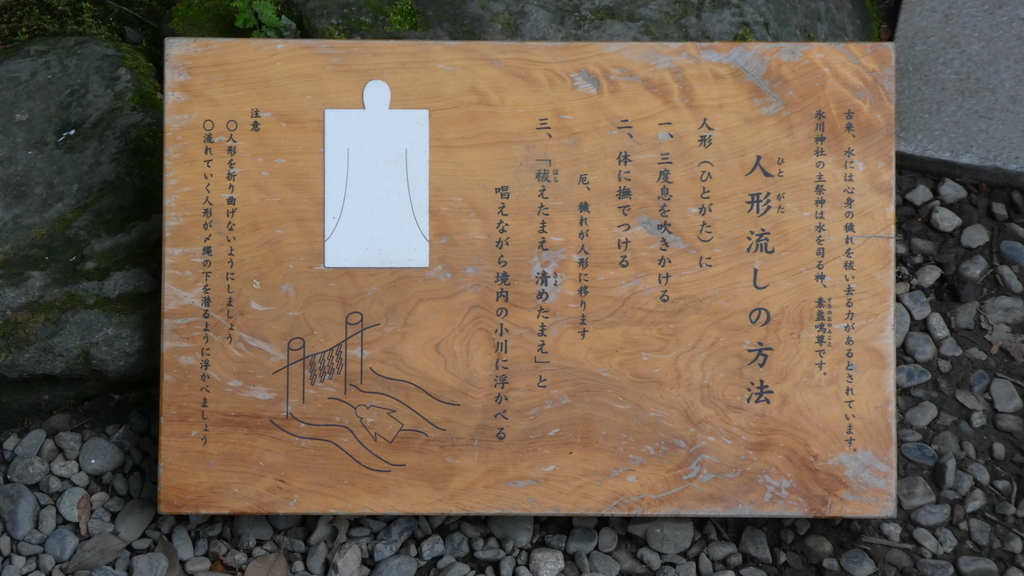 古来、水には心身の穢れを祓い去る力があるとされています。
氷川神社の主祭神は水を司る神、素盞嗚尊です。
すさのおのみこと
人形流しの方法
ひとがた
人形（ひとがた）に
一、三度息を吹きかける
二、体に撫でつける
厄、穢れが人形に移ります
三、「祓えたまえ　清めたまえ」と
はら
きよ
唱えながら境内の小川に浮かべる
注意
〇人形を折り曲げないようにしましょう
〇流れていく人形が〆縄の下を潜るように浮かべましょう